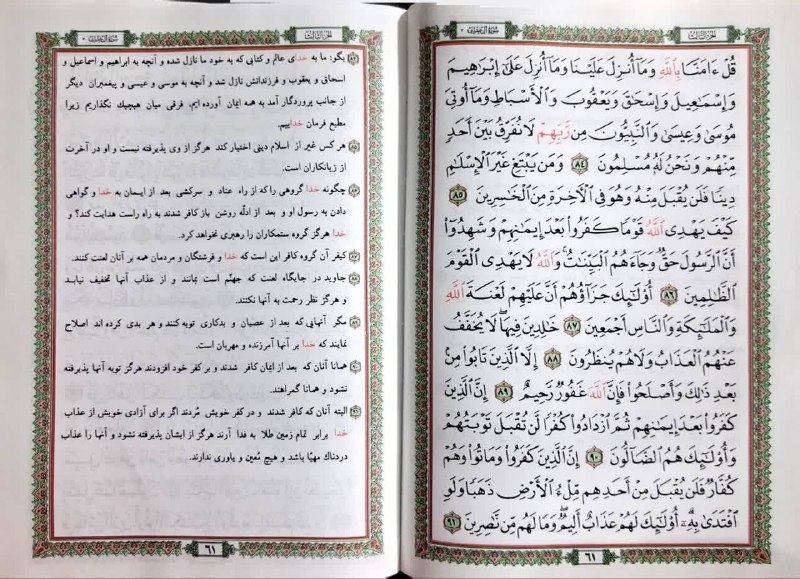 الجزء الثالث
سورة آل عمران
قُلْ ءَامَنَّا بِٱللَّهِ وَمَآ أُنزِلَ عَلَيْنَا وَمَآ أُنزِلَ عَلَىٰٓ إِبْرَٰهِيمَ
وَإِسْمَٰعِيلَ وَإِسْحَٰقَ وَيَعْقُوبَ وَٱلْأَسْبَاطِ وَمَآ أُوتِيَ
مُوسَىٰ وَعِيسَىٰ وَٱلنَّبِيُّونَ مِن رَّبِّهِمْ لَا نُفَرِّقُ بَيْنَ أَحَدٍ
مِّنْهُمْ وَنَحْنُ لَهُۥ مُسْلِمُونَ ٨٤ وَمَن يَبْتَغِ غَيْرَ ٱلْإِسْلَٰمِ
دِينًا فَلَن يُقْبَلَ مِنْهُ وَهُوَ فِي ٱلْأَخِرَةِ مِنَ ٱلْخَٰسِرِينَ ٨٥
كَيْفَ يَهْدِي ٱللَّهُ قَوْمًا كَفَرُوا۟ بَعْدَ إِيمَٰنِهِمْ وَشَهِدُوٓا۟
أَنَّ ٱلرَّسُولَ حَقٌّ وَجَآءَهُمُ ٱلْبَيِّنَٰتُ وَٱللَّهُ لَا يَهْدِي ٱلْقَوْمَ
ٱلظَّٰلِمِينَ ٨٦ أُو۟لَٰٓئِكَ جَزَآؤُهُمْ أَنَّ عَلَيْهِمْ لَعْنَةَ ٱللَّهِ
وَٱلْمَلَٰٓئِكَةِ وَٱلنَّاسِ أَجْمَعِينَ ٨٧ خَٰلِدِينَ فِيهَا لَا يُخَفَّفُ
عَنْهُمُ ٱلْعَذَابُ وَلَا هُمْ يُنظَرُونَ ٨٨ إِلَّا ٱلَّذِينَ تَابُوا۟ مِنۢ
بَعْدِ ذَٰلِكَ وَأَصْلَحُوا۟ فَإِنَّ ٱللَّهَ غَفُورٌ رَّحِيمٌ ٨٩ إِنَّ ٱلَّذِينَ
كَفَرُوا۟ بَعْدَ إِيمَٰنِهِمْ ثُمَّ ٱزْدَادُوا۟ كُفْرًا لَّن تُقْبَلَ تَوْبَتُهُمْ
وَأُو۟لَٰٓئِكَ هُمُ ٱلضَّآلُّونَ ٩٠ إِنَّ ٱلَّذِينَ كَفَرُوا۟ وَمَاتُوا۟ وَهُمْ
كُفَّارٌ فَلَن يُقْبَلَ مِنْ أَحَدِهِم مِّلْءُ ٱلْأَرْضِ ذَهَبًا وَلَوِ
ٱفْتَدَىٰ بِهِۦٓ أُو۟لَٰٓئِكَ لَهُمْ عَذَابٌ أَلِيمٌ وَمَا لَهُم مِّن نَّٰصِرِينَ ٩١
٦١
الجزء الثالث
سورة آل عمران
٨٤ بگو: ما به خدای عالم و کتابی که به خود ما نازل شده و آنچه به ابراهیم و اسماعیل و
اسحاق و یعقوب و فرزندانش نازل شد و آنچه به موسی و عیسی و پیغمبران دیگر
از جانب پروردگار آمد به همه ایمان آورده ایم، فرقی میان هیچیک نگذاریم زیرا
مطیع فرمان خداییم.
٨٥ هر کس غیر از اسلام دینی اختیار کند هرگز از وی پذیرفته نیست و او در آخرت
از زیانکاران است.
٨٦ چگونه خدا گروهی را که از راه عناد و سرکشی بعد از ایمان به خدا و گواهی
دادن به رسول او و بعد از ادلّه روشن باز کافر شدند به راه راست هدایت کند؟ و
خدا هرگز گروه ستمکاران را رهبری نخواهد کرد.
٨٧ کیفر آن گروه کافر این است که خدا و فرشتگان و مردمان همه بر آنان لعنت کنند.
٨٨ جاوید در جایگاه لعنت که جهنّم است بمانند و از عذاب آنها تخفیف نیابد
و هرگز نظر رحمت به آنها نکنند.
٨٩ مگر آنهایی که بعد از عصیان و بدکاری توبه کنند و هر بدی کرده اند اصلاح
نمایند که خدا بر آنها آمرزنده و مهربان است.
٩٠ همانا آنان که کافر شدند بعد از ایمان و بر کفر خود افزودند هرگز توبه آنها پذیرفته
نشود و همانا گمراهند.
٩١ البته آنان که کافر شدند و در کفر خویش مُردند اگر برای آزادی خویش از عذاب
خدا برابر تمام زمین طلا به فدا آرند هرگز از ایشان پذیرفته نشود و آنها را عذاب
دردناک مهیّا باشد و هیچ مُعین و یاوری ندارند.
٦١